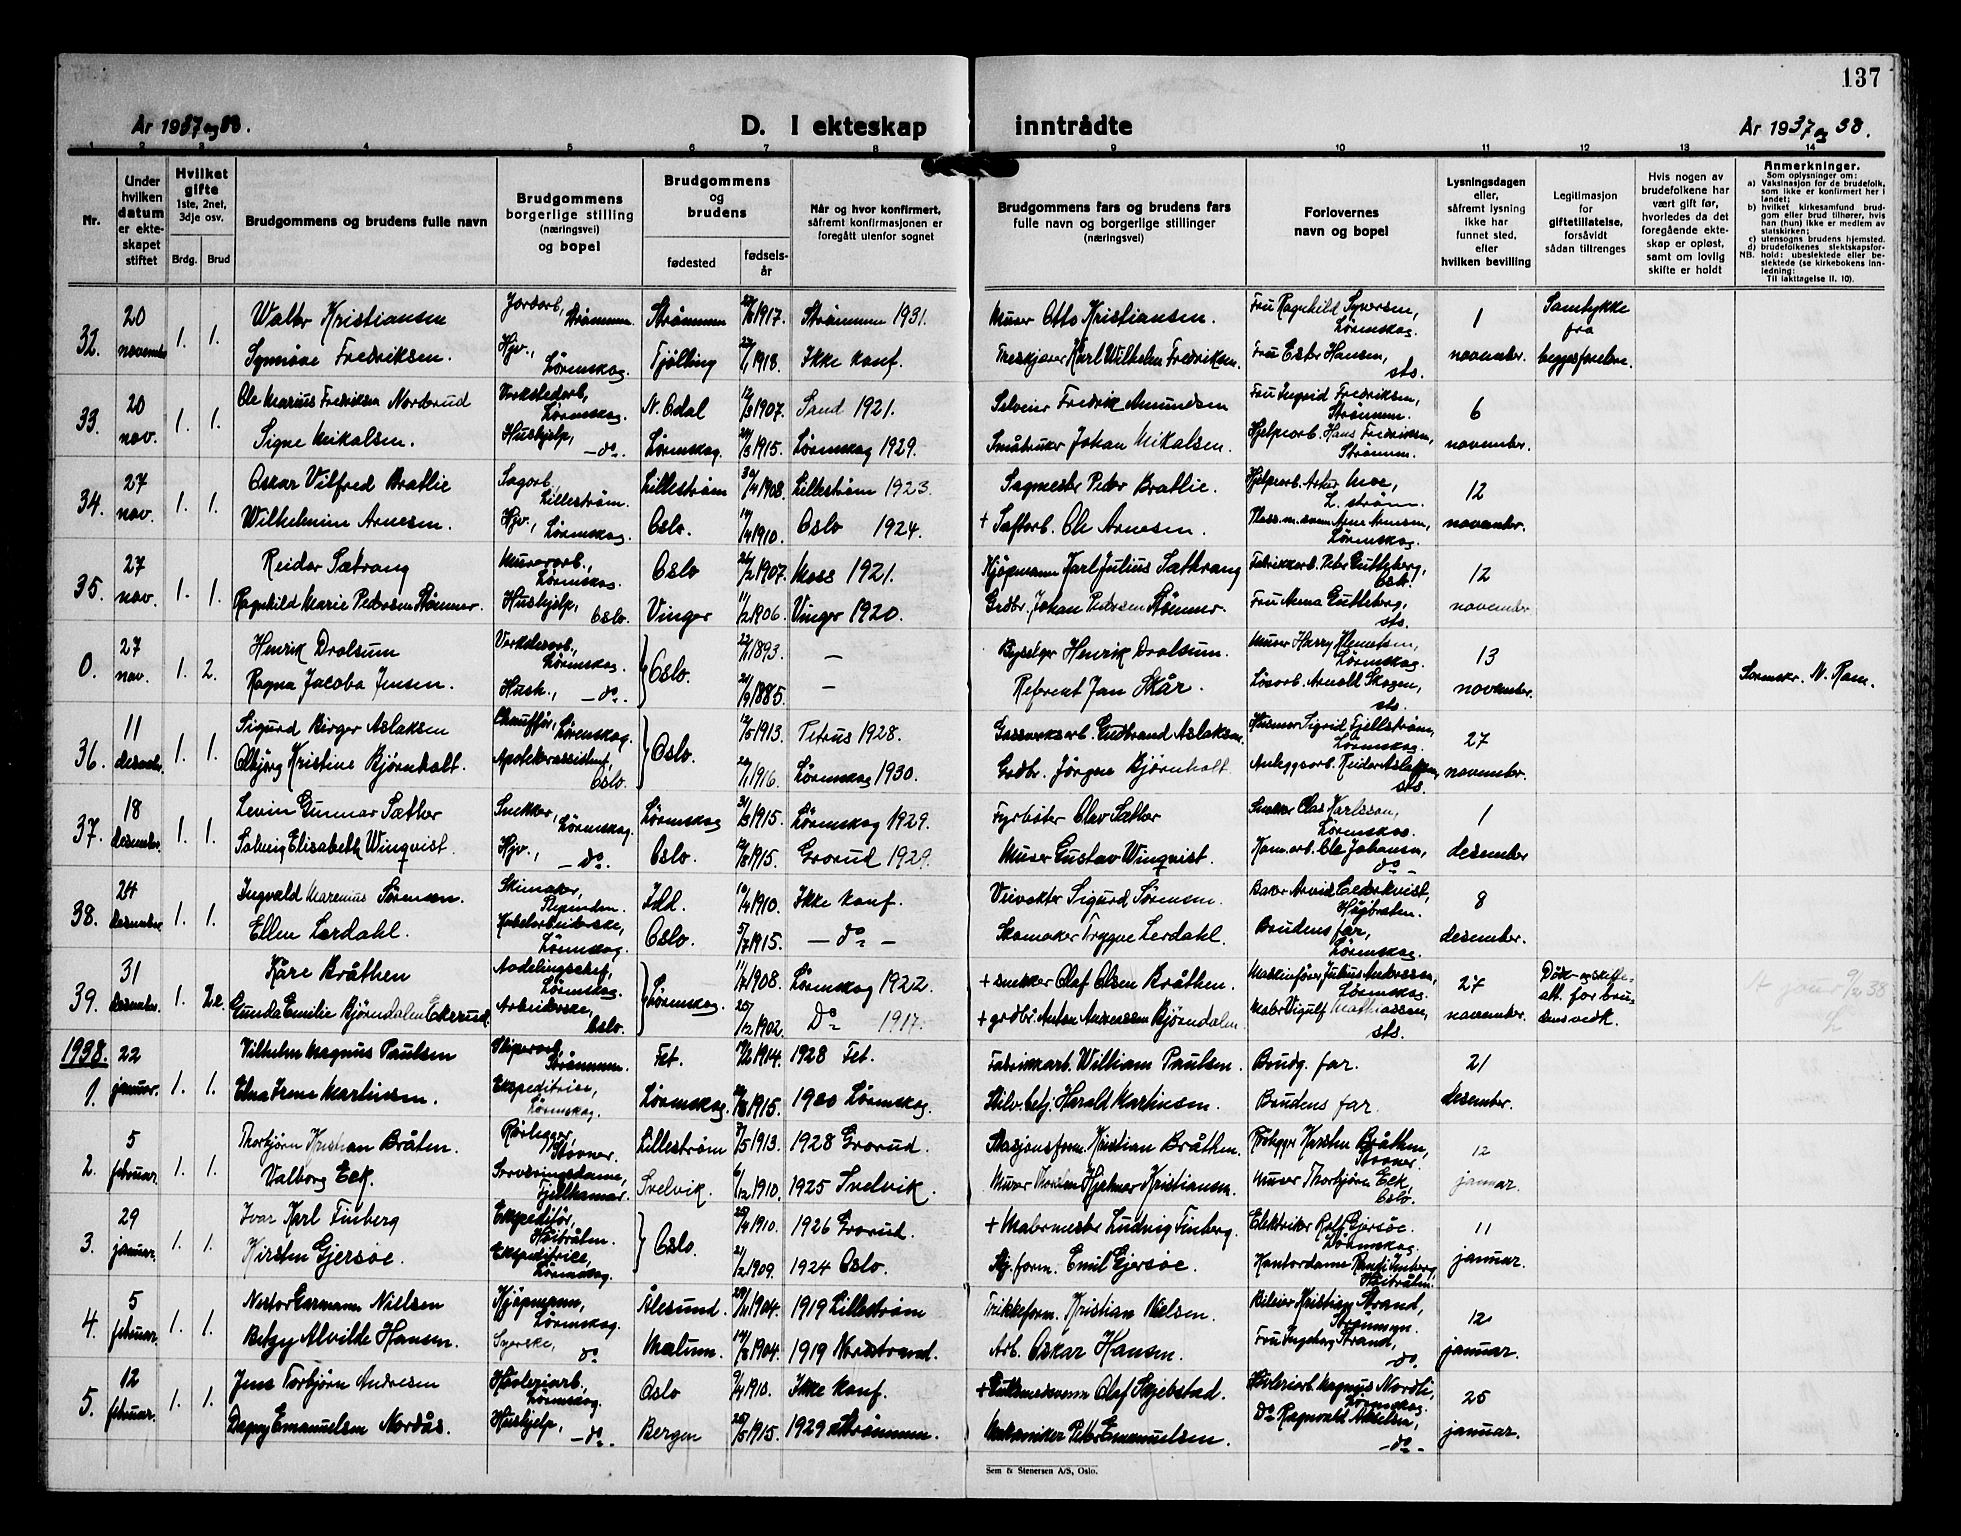 137
År 1937 og 38.
D. I ekteskap inntrådte
År 1937 og 38.
1 2 3 4 5 6 7 8 9 10 11 12 13 14
Nr.
Under hvilken datum er ekteskapet stiftet
Hvilket gifte 1ste, 2net, 3dje osv.
Brdg. Brud
Brudgommens og brudens fulle navn
Brudgommens borgerlige stilling (næringsvei) og bopel
Brudgommens og brudens
fødested
fødselsår
Når og hvor konfirmert, såfremt konfirmasjonen er foregått utenfor sognet
Brudgommens fars og brudens fars fulle navn og borgerlige stillinger (næringsvei)
Forlovernes navn og bopel
Lysningsdagen eller, såfremt lysning ikke har funnet sted, efter hvilken bevilling
Legitimasjon for giftetillatelse, forsåvidt sådan tiltrenges
Hvis nogen av brudefolkene har vært gift før, hvorledes da det foregående ekteskap er opløst, samt om lovlig skifte er holdt
Anmerkninger.
Som oplysninger om:
a) Vaksinasjon for de brudefolk, som ikke er konfirmert her i landet;
b) hvilket kirkesamfund brudgom eller brud tilhører, hvis han (hun) ikke er medlem av statskirken;
c) utensogns brudens hjemsted.
d) brudefolkenes slektskapsforhold: ubeslektede eller beslektede (se kirkebokens innledning:
NB. Til iakttagelse II. 10).
32. 20 november 1. 1. Walter Kristiansen Jordarb., Strømmen Strømmen 1917. Strømmen 1931. Murer Otto Kristiansen. Fru Ragnhild Syversen, Lørenskog. 1 november. Samtykke fra begges foreldre.
Synnøve Fredriksen. Hjv., Lørenskog. Tjølling 1918. Ikke konf. Treskjærer Karl Wilhelm Fredriksen. Fru Ester Hansen, sts.
33. 20 nov. 1. 1. Ole Marius Fredriksen Norderud Verkstedarb, Lørenskog. N. Odal 1907. Sand 1921. Selveier Fredrik Amundsen Fru Ingrid Fredriksen, Strømmen. 6 november.
Signe Mikalsen. Hushjelp, -do-. Lørenskog. 1915. Lørenskog 1929. Småbruker Johan Mikalsen. Hjelpearb. Hans Fredriksen, Strømmen.
34. 27 nov. 1. 1. Oskar Vilfred Bratlie Sagarb, Lillestrøm. Lillestrøm 1908. Lillestrøm 1923. Sagmester Peder Bratlie. Hjelpearb. Artur Moe, L.strøm. 12 november.
Wilhelmine Arnesen. Hjv., Lørenskog. Oslo. 1910. Oslo 1924. + Ole Arnesen. Arne Arnesen, Lørenskog.
35. 27 nov. 1. 1. Reidar Sætrang Murerarb., Lørenskog. Oslo 1907. Moss 1921. Kjøpmann Karl Julius Sæthrang Fabrikkarb. Peter Gutteberg, Oslo. 12 november
Ragnhild Marie Pedersen Stømner. Hushjelp, Oslo. Vinger 1906. Vinger 1920. Grdbr. Johan Pedersen Stømner. Fru Anna Gutteberg, sts.
0. 27 nov. 1. 2. Henrik Drolsum Lørenskog. Oslo. 1893. – Henrik Drolsum. Murer Harry Lørenskog. 13 november.
Ragna Jacoba Jensen. Hush., -do-. 1885. – Jan Skår. Løsarb. Arnold Skogen, sts. Sorenskr. N. Rom.
36. 11 desember 1. 1. Sigurd Birger Aslaksen Chauffør, Lørenskog. Oslo. 1913. Petrus 1928. Gassverksarb. Gudbrand Aslaksen. Sigrid Fjellstrøm, Lørenskog. 27 november.
Kristine Bjørnholt. Apotekerassistent, Oslo. 1916. Lørenskog 1930. Grdbr. Jørgen Bjørnholt. Anleggsarb. Reidar Aslaksen, sts.
37. 18 desember. 1. 1. Levin Gunnar Sæther Snekker, Lørenskog. Lørenskog 1915. Lørenskog 1929. Fyrbøter Olav Sæther Snekker Olas Karlsson, Lørenskog. 1 desember
Solveig Elisabeth Winqvist. Hjv., -do-. Oslo. 1915. Grorud 1929. Murer Gustav Winqvist. Kom.arb. Ole Johansen, do
38. 24 desember 1. 1. Ingvald Marenius Sørensen. Skimaker, Idd. 1910. Ikke konf. Veivokter Sigurd Sørensen. Baker Arvid Cederkvist, Høybråten. 8 desember.
Ellen Lerdahl. Lørenskog. Oslo. 5/7 1915. -do- Skomaker Trygve Lerdahl. Brudens far, Lørenskog.
39. 31 desember. 1. 2. Kåre Bråthen Avdelingssjef, Lørenskog. Lørenskog. 1908. Lørenskog 1922. + snekker Olaf Olsen Bråthen. Maskinfører Julius Andersen, Lørenskog. 27 november. Døds- og skifteatt. for brudens vedk.
Gunda Emilie Bjørndalen Ekerud. Arbeiderske, Oslo. 1902. Do 1917. + grdbr. Anton Andreassen Bjørndalen. Maler Vigulf Mathiassen, sts.
1938.
1. 22 januar. 1. 1. Vilhelm Magnus Paulsen Strømmen. Fet. 1914. 1928 Fet. Fabrikkarb. William Paulsen. Brudg. far. 21 desember.
Elna Irene Martinsen. Ekspeditrise, Lørenskog. Lørenskog. 1915. 1930 Lørenskog. Harald Martinsen. Brudens far.
2. 5 februar. 1. 1. Thorbjørn Kristian Bråten. Rørlegger, Stovner. Lillestrøm 1913. 1928 Grorud. Stasjonsform. Kristian Bråthen. Rørlegger Karsten Bråthen, Stovner. 12 januar.
Valborg Eek. Serveringsdame, Fjellhamar. Svelvik. 6/12 1910. 1925 Svelvik. Murer Hjalmar Kristiansen. Murer Thorbjørn Eek, Oslo.
3. 29 januar. 1. 1. Ivar Karl Finberg Ekspeditør, Høibråten. Oslo. 1910. 1926 Grorud. + Malermester Ludvig Finberg. Elektriker Rolf Gjersøe. Lørenskog. 11 januar.
Kirsten Gjersøe. Ekspeditrice, Lørenskog. 1909. 1924 Oslo. Emil Gjersøe. Kontordame Randi Finberg, Høibråten.
4. 5 februar. 1. 1. Nestor Garmann Nielsen Kjøpmann, Lørenskog. Ålesund. 1904. 1919 Lillestrøm Trikkeform. Kristian Nielsen. Bileier Kristian Strand, Strømmen. 12 januar.
Betzy Alvilde Hansen. Syerske, do Malum. 1904. 1919 Nordstrand. Arb. Oskar Hansen. Fru Ingeborg Strand, -do
5. 12 februar. 1. 1. Jens Torbjørn Andresen Høvleriarb., Lørenskog. Oslo 9/4 1910. Ikke konf. + Olaf Skjebstad. Høvleriarb. Magnus Nordli, Lørenskog. 25 januar.
Dagny Emanuelsen Nordås. Hushjelp, -do-. Bergen 1915. 1929 Strømmen. Mekaniker Peter Emanuelsen. Do Ragnvald Akselsen, -do-
Sem & Stenersen A/S, Oslo.